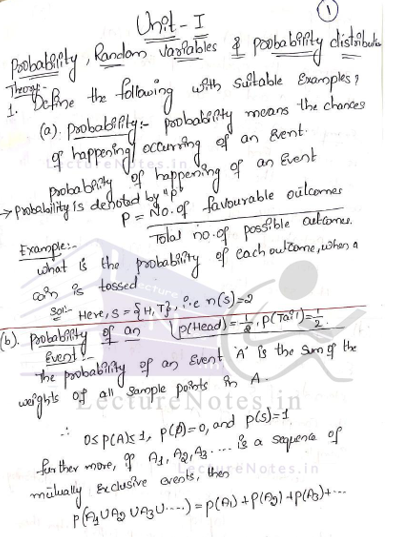 1
Unit - I
Probability, Random variables & probability distribution
Theory:-
1. Define the following with suitable Examples?
(a). Probability:- probability means the chances
of happening occurring of an event.
Probability of happening of an event
→ probability is denoted by "P"
P = No. of favourable outcomes
Total no. of possible outcomes.
Example:-
what is the probability of each outcome, when a
coin is tossed
Sol:- Here, S = {H, T}, i.e n(s)=2
P(Head) = 1/2, P(Tail) = 1/2.
(b). probability of an
Event:-
The probability of an Event 'A' is the sum of the
weights of all sample points in A.
∴ 0≤P(A)≤1, P(φ)=0, and P(S)=1
further more, if A1, A2, A3 .... is a sequence of
mutually exclusive events, then
P(A1 U A2 U A3 U .....) = P(A1) + P(A2) + P(A3) + ...
LectureNotes.in
LectureNotes.in
LectureNotes.in